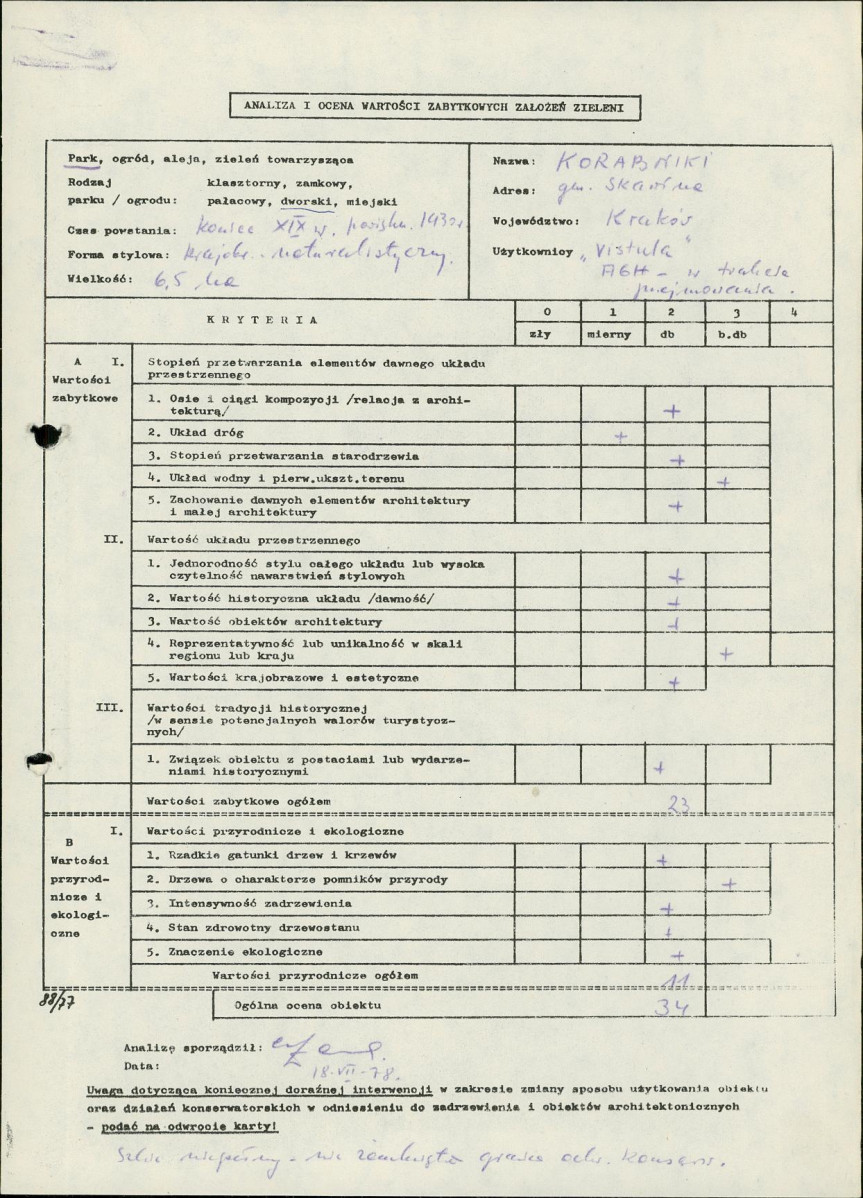 ANALIZA I OCENA WARTOŚCI ZABYTKOWYCH ZAŁOŻEŃ ZIELENI
Park, ogród, aleja, zieleń towarzysząca
Rodzaj klasztorny, zamkowy,
parku / ogrodu: pałacowy, dworski, miejski
Czas powstania: koniec XIX w. 1930r.
Forma stylowa: krajobr. - naturalistyczny.
Wielkość: 6,5 ha
Nazwa: KORABNIKI
Adres: gm. Skawina
Województwo: Kraków
Użytkownicy "Vistula"
AGH - w trakcie
przejmowania.
KRYTERIA
0 1 2 3 4
zły mierny db b.db
A I. Stopień przetwarzania elementów dawnego układu
Wartości przestrzennego
zabytkowe
1. Osie i ciągi kompozycji /relacja z archi-
tekturą/ +
2. Układ dróg +
3. Stopień przetwarzania starodrzewia +
4. Układ wodny i pierw.ukszt.terenu +
5. Zachowanie dawnych elementów architektury
i małej architektury +
II. Wartość układu przestrzennego
1. Jednorodność stylu całego układu lub wysoka
czytelność nawarstwień stylowych +
2. Wartość historyczna układu /dawność/ +
3. Wartość obiektów architektury +
4. Reprezentatywność lub unikalność w skali
regionu lub kraju +
5. Wartości krajobrazowe i estetyczne +
III. Wartości tradycji historycznej
/w sensie potencjalnych walorów turystycz-
nych/
1. Związek obiektu z postaciami lub wydarze-
niami historycznymi +
Wartości zabytkowe ogółem 23
I. Wartości przyrodnicze i ekologiczne
B
Wartości
przyrod-
nicze i
ekologi-
czne
1. Rzadkie gatunki drzew i krzewów +
2. Drzewa o charakterze pomników przyrody +
3. Intensywność zadrzewienia +
4. Stan zdrowotny drzewostanu +
5. Znaczenie ekologiczne +
Wartości przyrodnicze ogółem 11
88/77
Ogólna ocena obiektu 34
Analizę sporządził:
Data: 18-VII-78.
Uwaga dotycząca koniecznej doraźnej interwencji w zakresie zmiany sposobu użytkowania obiektu
oraz działań konserwatorskich w odniesieniu do zadrzewienia i obiektów architektonicznych
- podać na odwrocie karty!
niepełny - nie zamknięta granica ochr. Konserw.